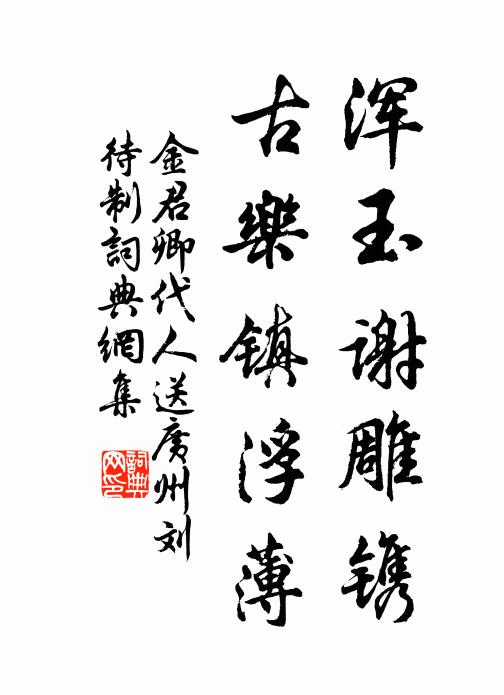 浑玉谢雕镌
古樂镇浮薄
金君卿代人送廣州刘
待制詞典網集
詞典网印